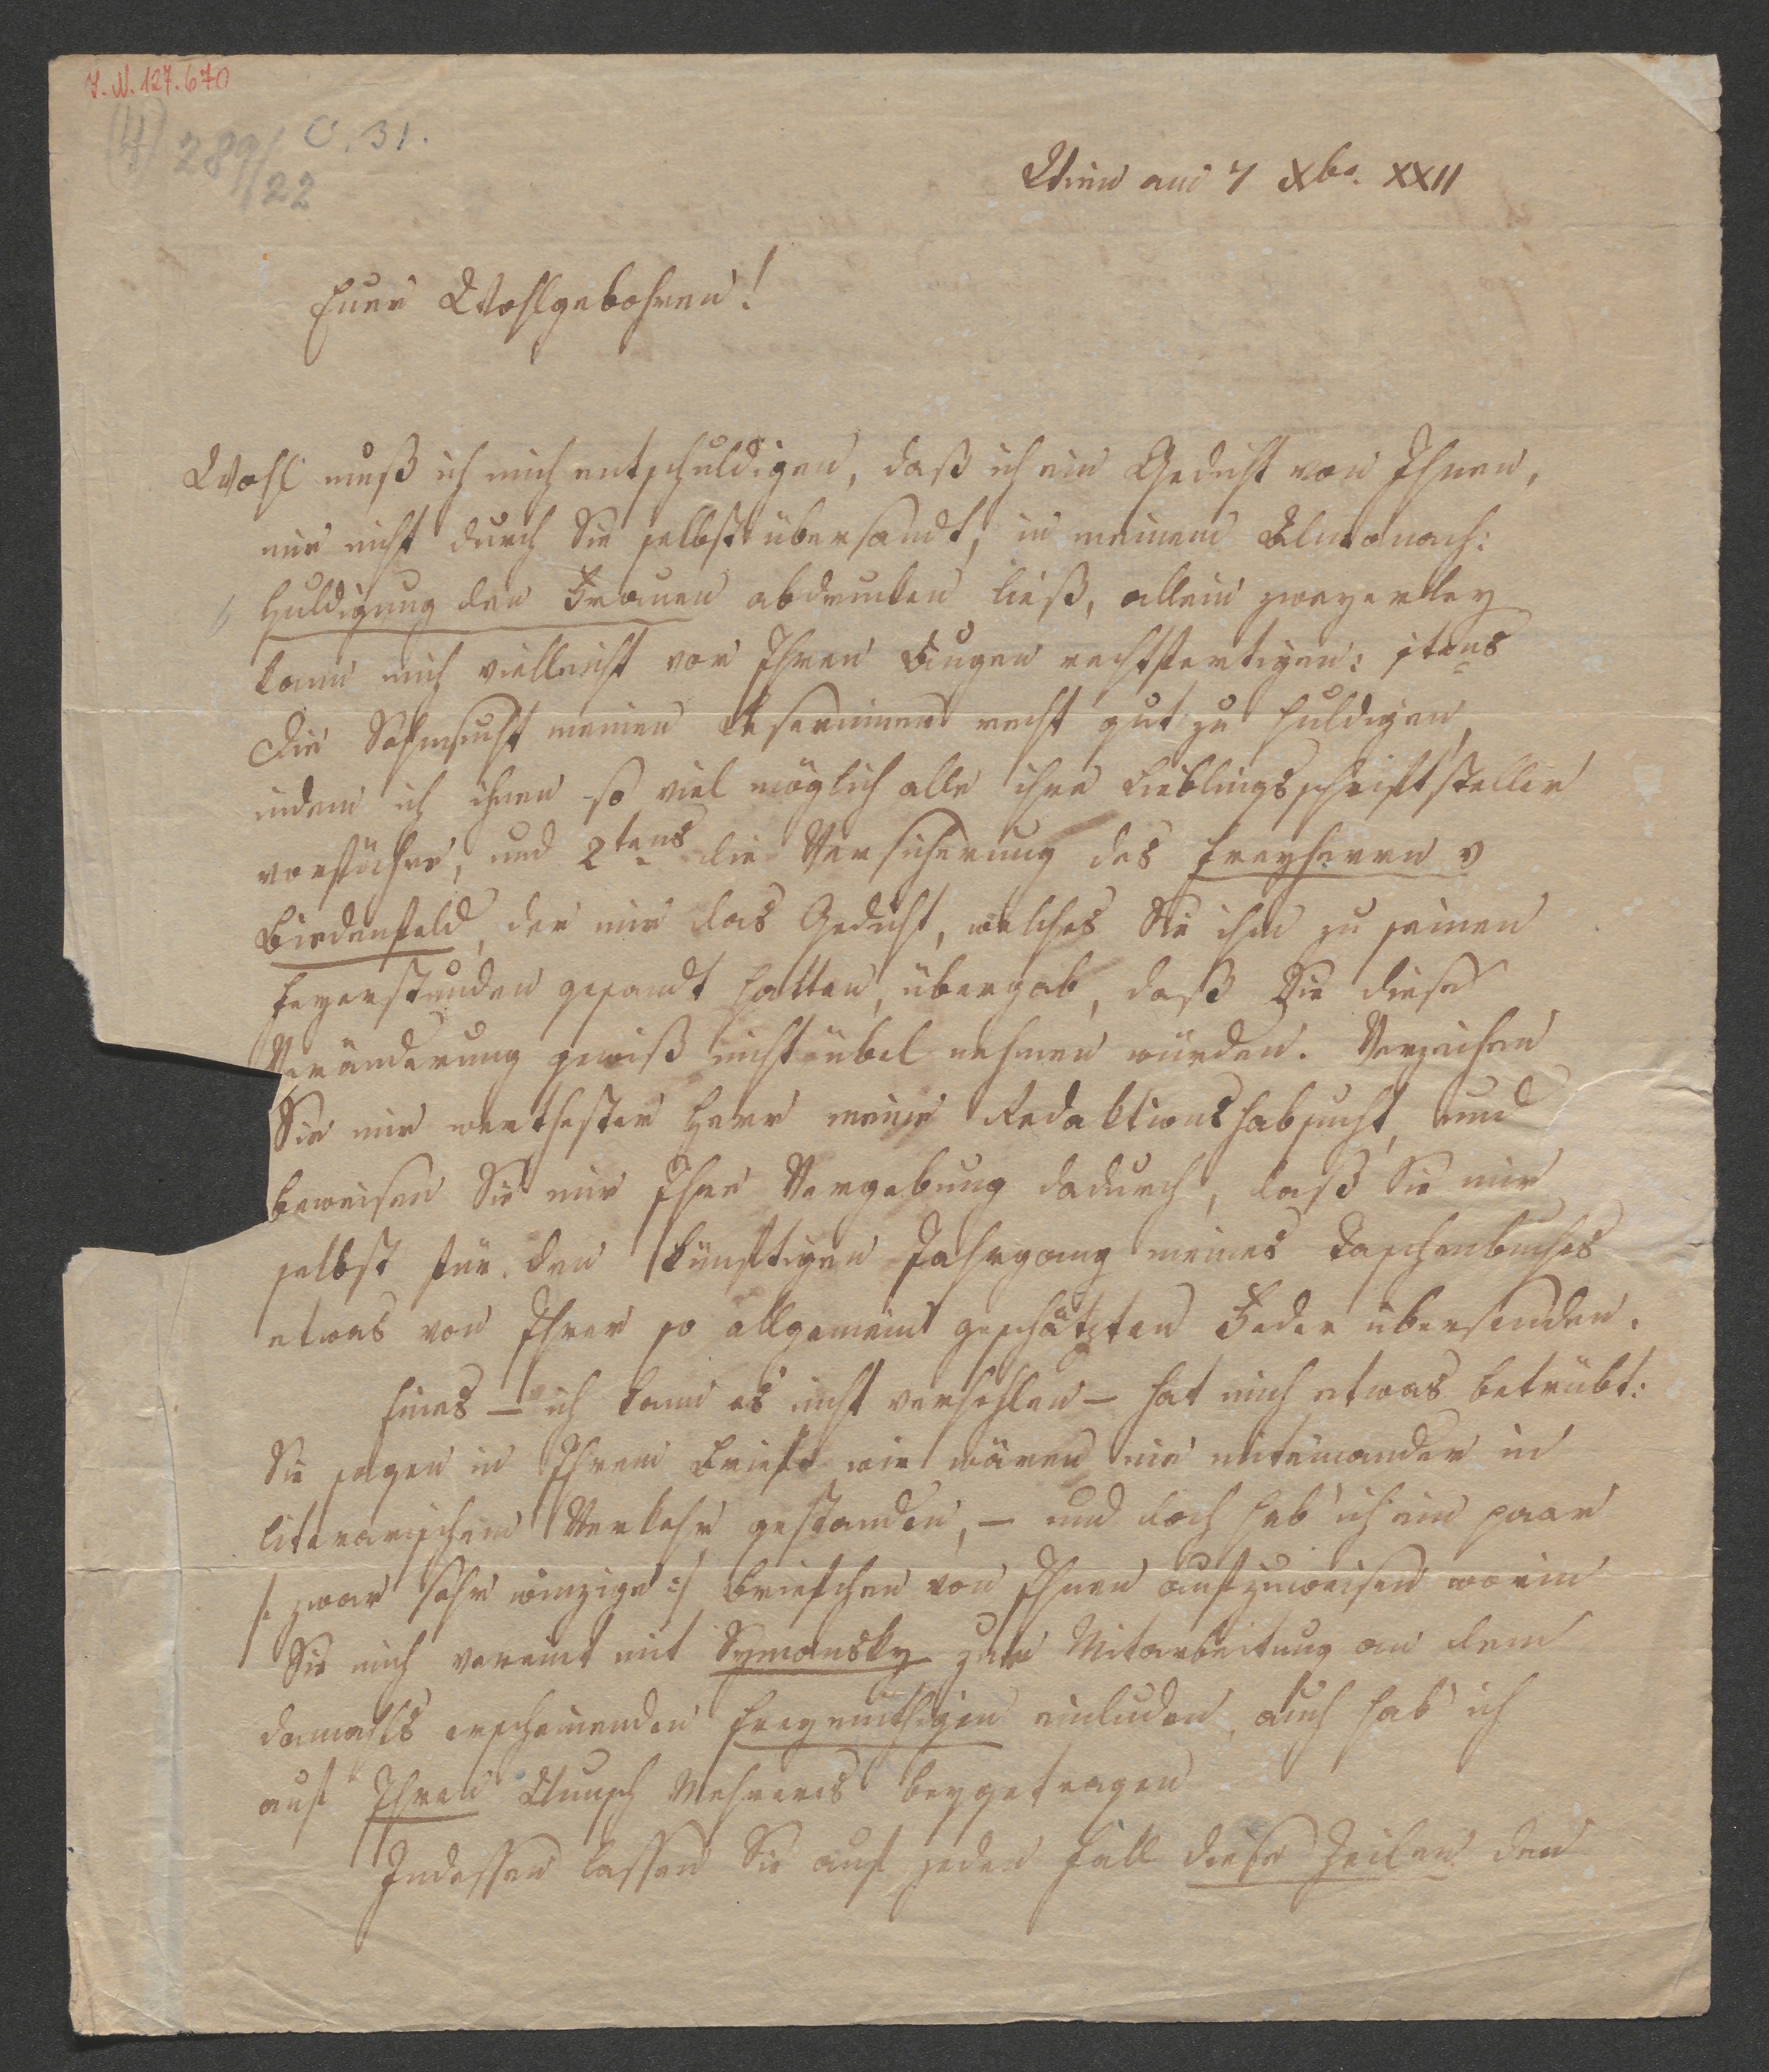 I. N. 127.670
(4) 289/22
C. 31.
Wien am 7 Xbr. XXII
Euer Wohlgebohren!
Wohl muß ich mich entschuldigen, daß ich ein Gedicht von Ihnen,
mir nicht durch Sie selbst übersandt, in meinem Almanach:
Huldigung den Frauen abdrucken ließ, allein zweyerley
kann mich vielleicht vor Ihren Augen rechtfertigen: 1tens
Die Sehnsucht meinen Leserinnen recht gut zu huldigen,
indem ich ihnen so viel möglich alle ihre Lieblingsschriftsteller
vorführe, und 2tens die Versicherung des Freyherrn v
Biedenfeld, der mir das Gedicht, welches Sie ihm zu seinen
Feyerstunden gesandt hatten, übergab, daß Sie diese
Veränderung gewiß nicht übel nehmen würden. Verzeihen
Sie mir werthester Herr meine Redaktionshabsucht, und
beweisen Sie mir Ihre Vergebung dadurch, daß Sie mir
selbst für den künftigen Jahrgang meines Taschenbuches
etwas von Ihrer so allgemein geschätzten Feder übersenden.
Eines – ich kann es nicht verhehlen – hat mich etwas betrübt:
Sie sagen in Ihrem Briefe wir wären nie miteinander in
literarischem Verkehr gestanden, – und doch hab' ich ein paar
/: zwar sehr winzige :/ Briefchen von Ihnen aufzuweisen worin
Sie mich vereint mit Symansky zur Mitarbeitung an dem
damahls erscheinenden Freymüthigen einluden, auch hab' ich
auf Ihren Wunsch Mehreres beygetragen
Indessen lassen Sie auf jeden Fall diese Zeilen den